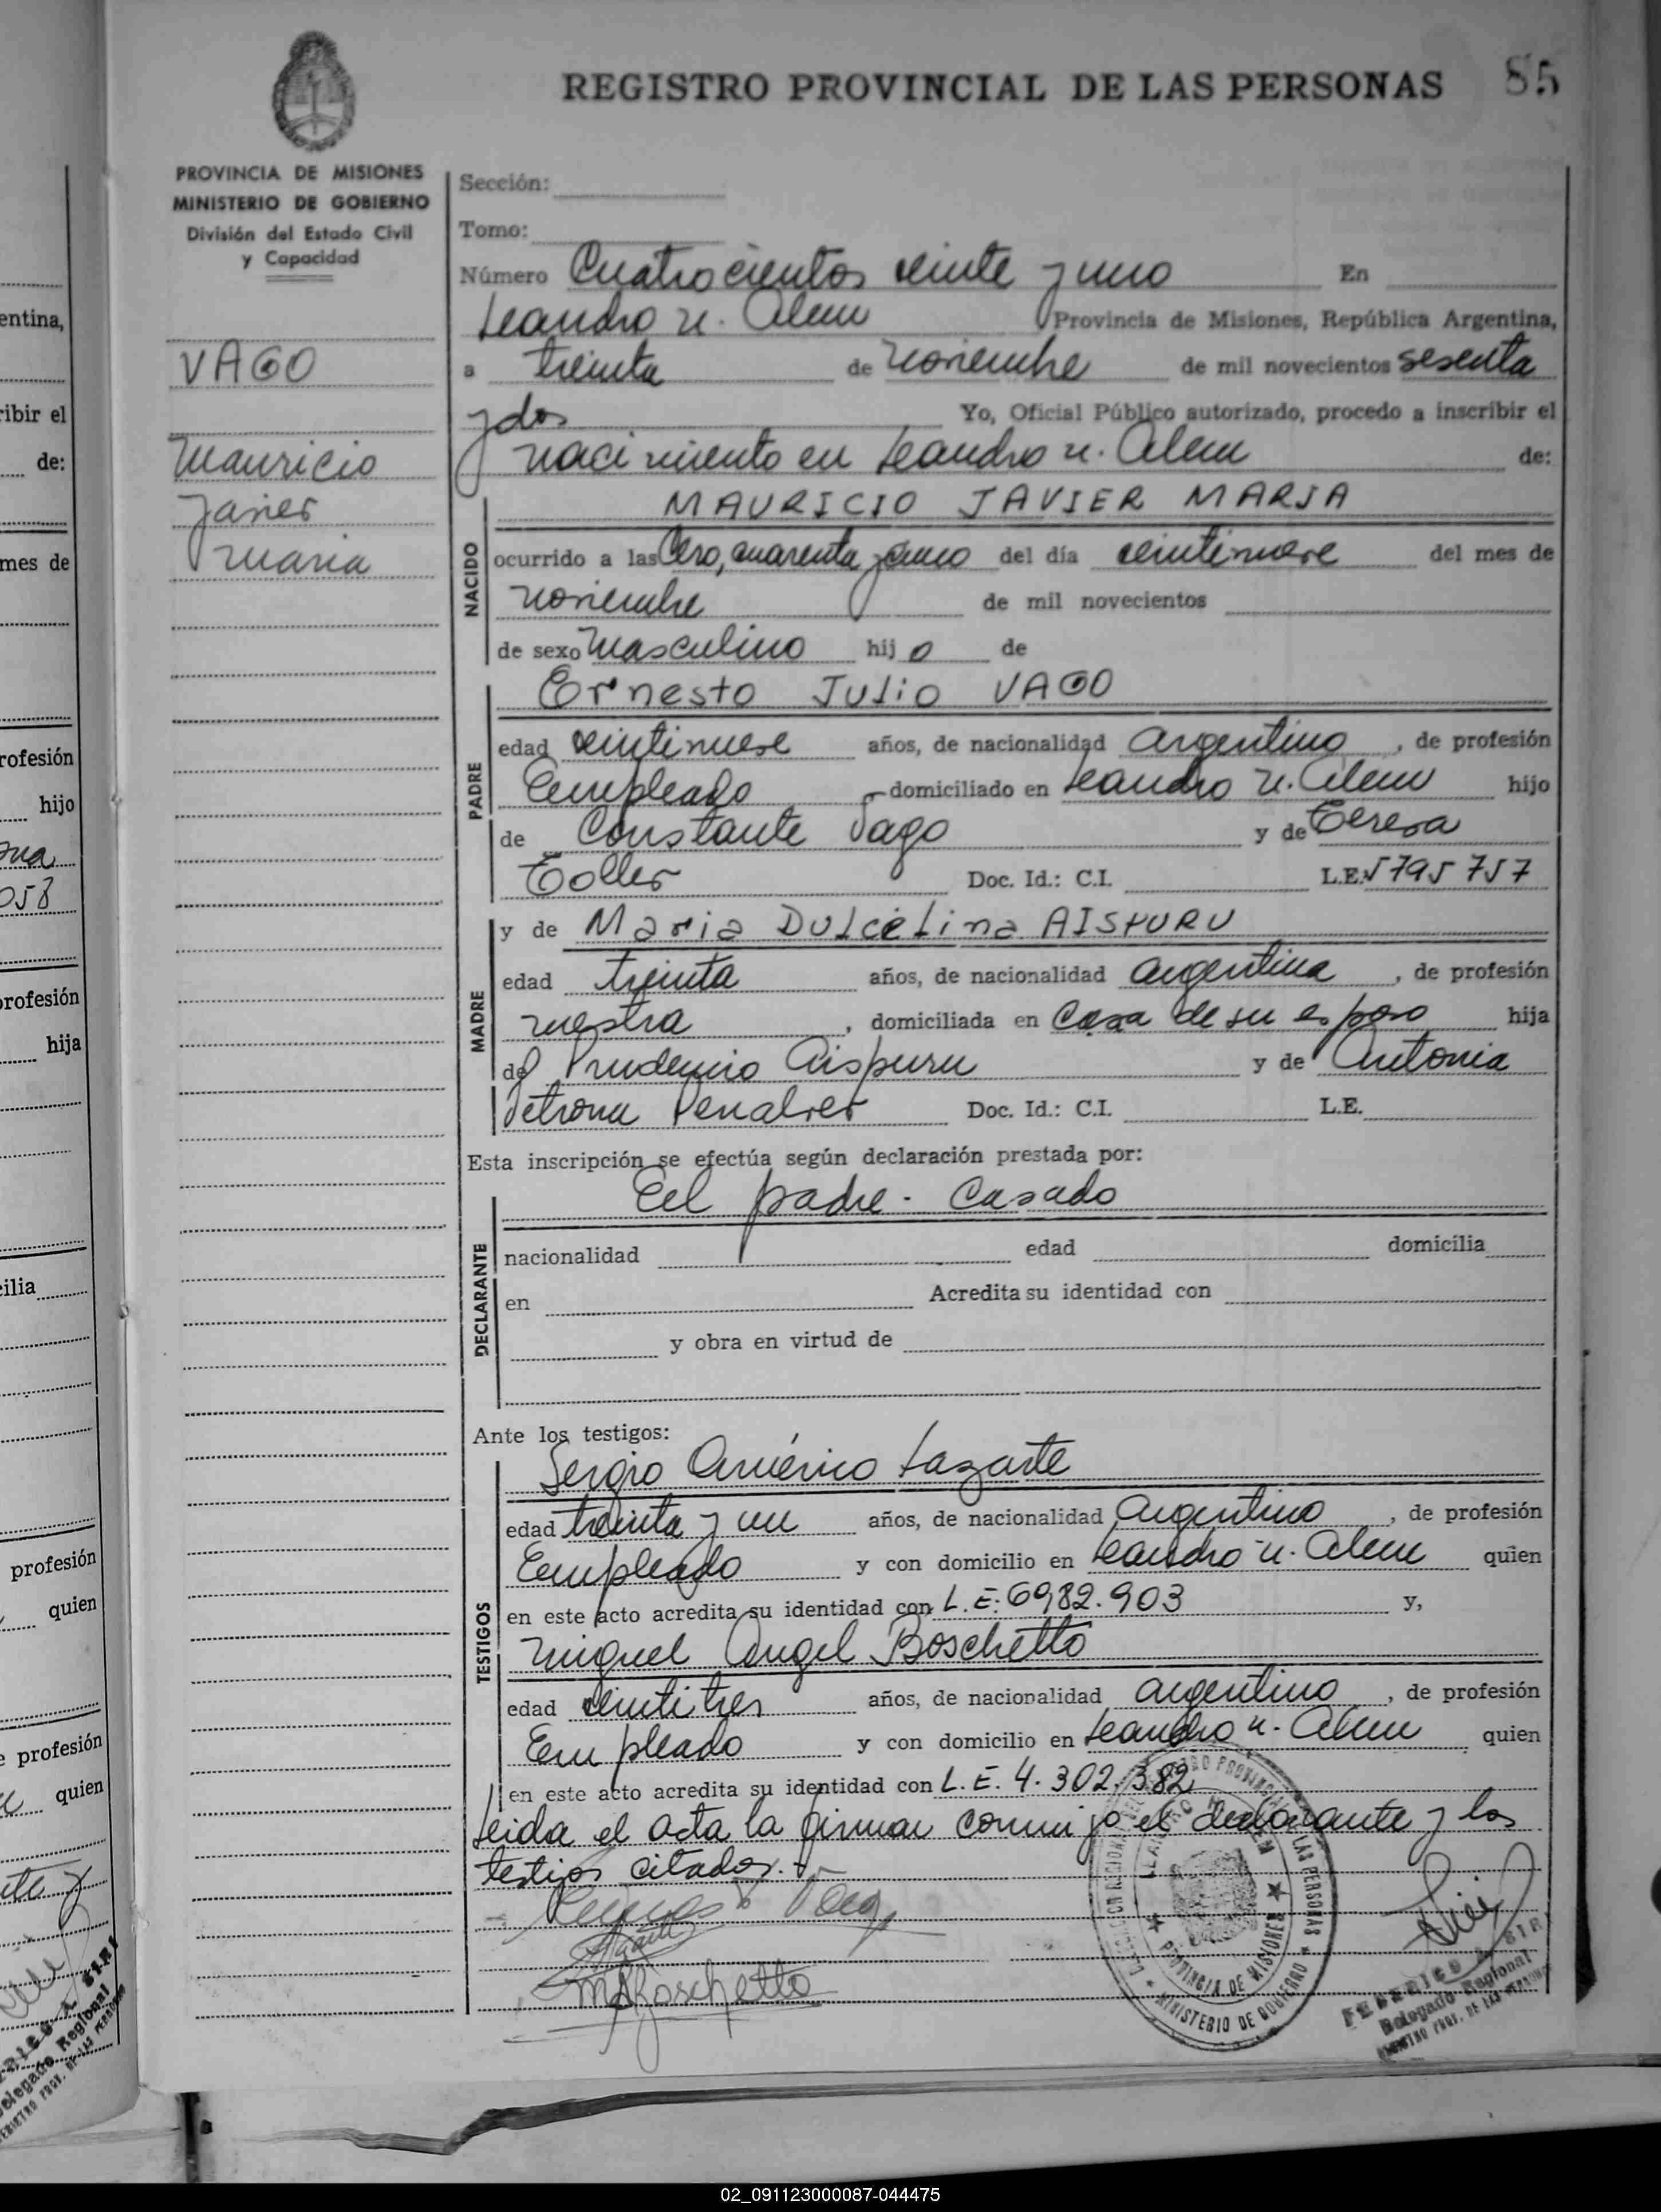 REGISTRO PROVINCIAL DE LAS PERSONAS 85
PROVINCIA DE MISIONES
MINISTERIO DE GOBIERNO
División del Estado Civil
y Capacidad
VAGO
Mauricio
Javier
Maria
Sección:
Tomo:
Número Cuatrocientos veinte y uno En
Leandro N. Alem Provincia de Misiones, República Argentina,
a treinta de Noviembre de mil novecientos sesenta
y dos Yo, Oficial Público autorizado, procedo a inscribir el
nacimiento en Leandro N. Alem de:
NACIDO
MAURICIO JAVIER MARIA
ocurrido a las Cero, cuarenta y cinco del día veintinueve del mes de
noviembre de mil novecientos
de sexo Masculino hij o de
PADRE
Ernesto Julio VAGO
edad veintinueve años, de nacionalidad Argentino, de profesión
Empleado domiciliado en Leandro N. Alem hijo
de Constante Vago y de Teresa
Toller Doc. Id.: C.I. L.E. 5795757
MADRE
y de Maria Dulcelina AISPURU
edad treinta años, de nacionalidad argentina, de profesión
, domiciliada en Casa de su esposo hija
de Prudencio Aispuru y de Antonia
Petrona Penalver Doc. Id.: C.I. L.E.
Esta inscripción se efectúa según declaración prestada por:
DECLARANTE
El padre - Casado
nacionalidad edad domicilia
en Acredita su identidad con
y obra en virtud de
Ante los testigos:
TESTIGOS
Sergio Américo Lazarte
edad treinta y un años, de nacionalidad Argentino, de profesión
Empleado y con domicilio en Leandro N. Alem quien
en este acto acredita su identidad con L.E: 6982.903 y,
Miguel Angel Boschetto
edad veintitres años, de nacionalidad argentino, de profesión
Empleado y con domicilio en Leandro N. Alem quien
en este acto acredita su identidad con L.E. 4.302.382
Leida el acta la firman conmigo el declarante y los
testigos citados.
MABoschetto
LEANDRO N. ALEM
PROVINCIA DE MISIONES
MINISTERIO DE GOBIERNO
FEDERICO
Delegado Regional
02_091123000087-044475